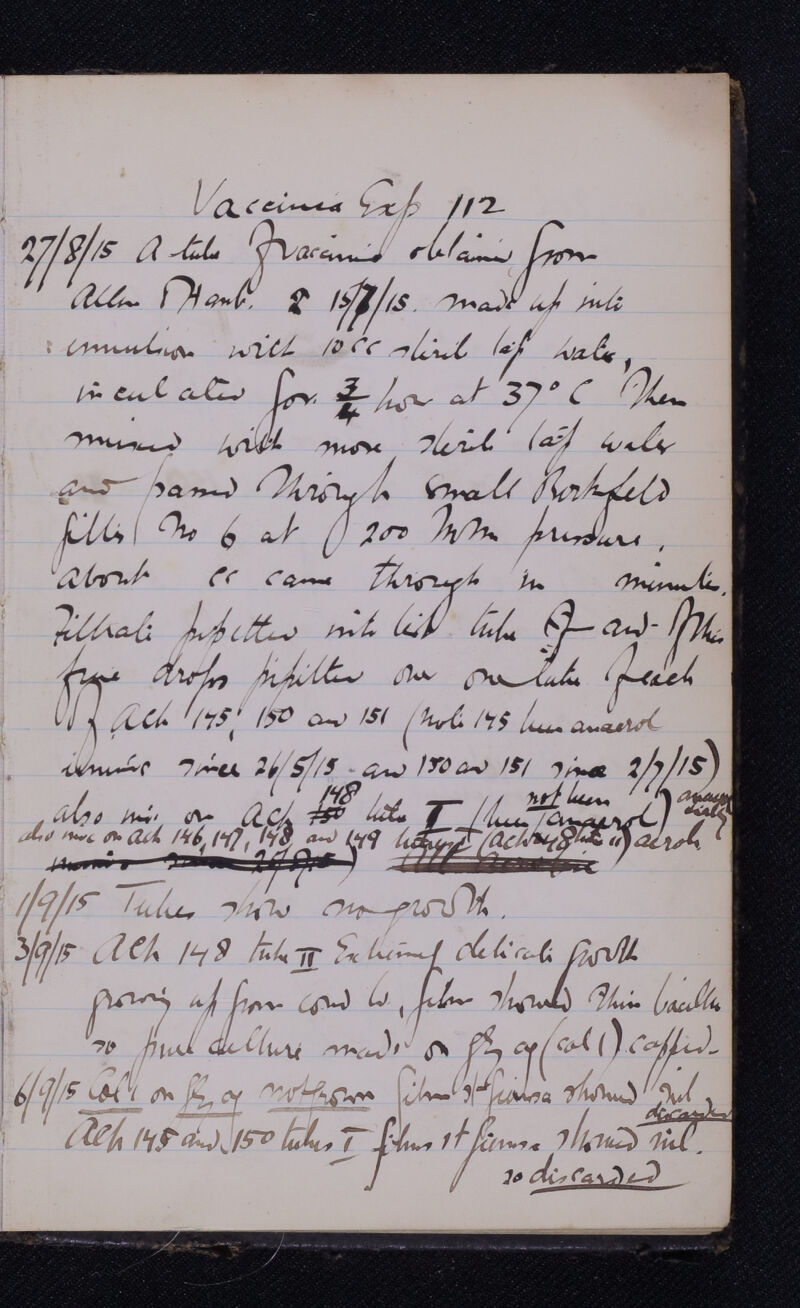 Vaccinia Exp 112
27/8/15 A tube of vaccinia obtained from
Allen & Hanb. 15/7/15. made up into
emulsion with 10cc steril tap water,
incubated for 3/4 hour at 37° C Then
mixed with more steril tap water
and passed through small Berkefeld
filter No 6 at 200 Mm pressure.
about cc came through in minutes.
Filtrate pipetted into test tube and of this
five drops pipetted over one tube of each
of Ach 145, 150 and 151 (note 145 been anaerob
since 26/5/15 and 150 and 151 since 2/7/15)
also inoc on Ach 148 tube II (not been anaerob)
also inoc on Ach 146, 147, 148, and 149 (Ach 148 tube II) aerob
1/9/15 Tubes show no growth.
3/9/15 Ach 148 tube II Extremely delicate growth
growing up from cond, film showed thin bacillus
so pure culture made on gly ag (col 1) capped
6/9/15 Col 1 on gly ag not grown film st Giemsa showed nil
discarded
Ach 145 and 150 tubes I films st Giemsa showed nil.
so discarded